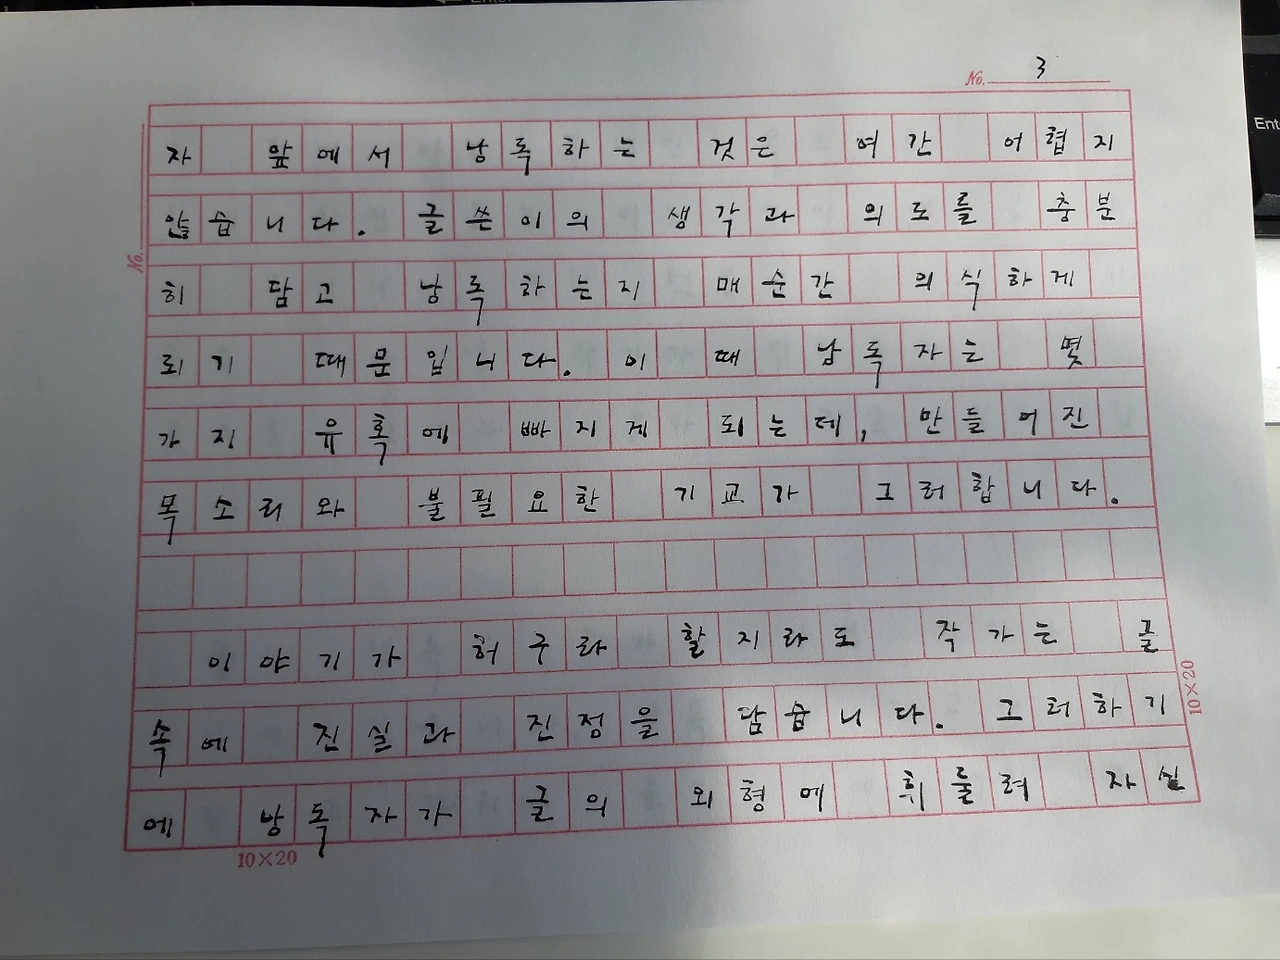 Enter
No. 3
자 앞에서 낭독하는 것은 여간 어렵지
않습니다. 글쓴이의 생각과 의도를 충분
히 담고 낭독하는지 매순간 의식하게
되기 때문입니다. 이 때 낭독자는 몇
가지 유혹에 빠지게 되는데, 만들어진
목소리와 불필요한 기교가 그러합니다.
이야기가 허구라 할지라도 작가는 글
속에 진실과 진정을 담습니다. 그러하기
에 낭독자가 글의 외형에 휘둘려 자신
No.
10×20
10×20